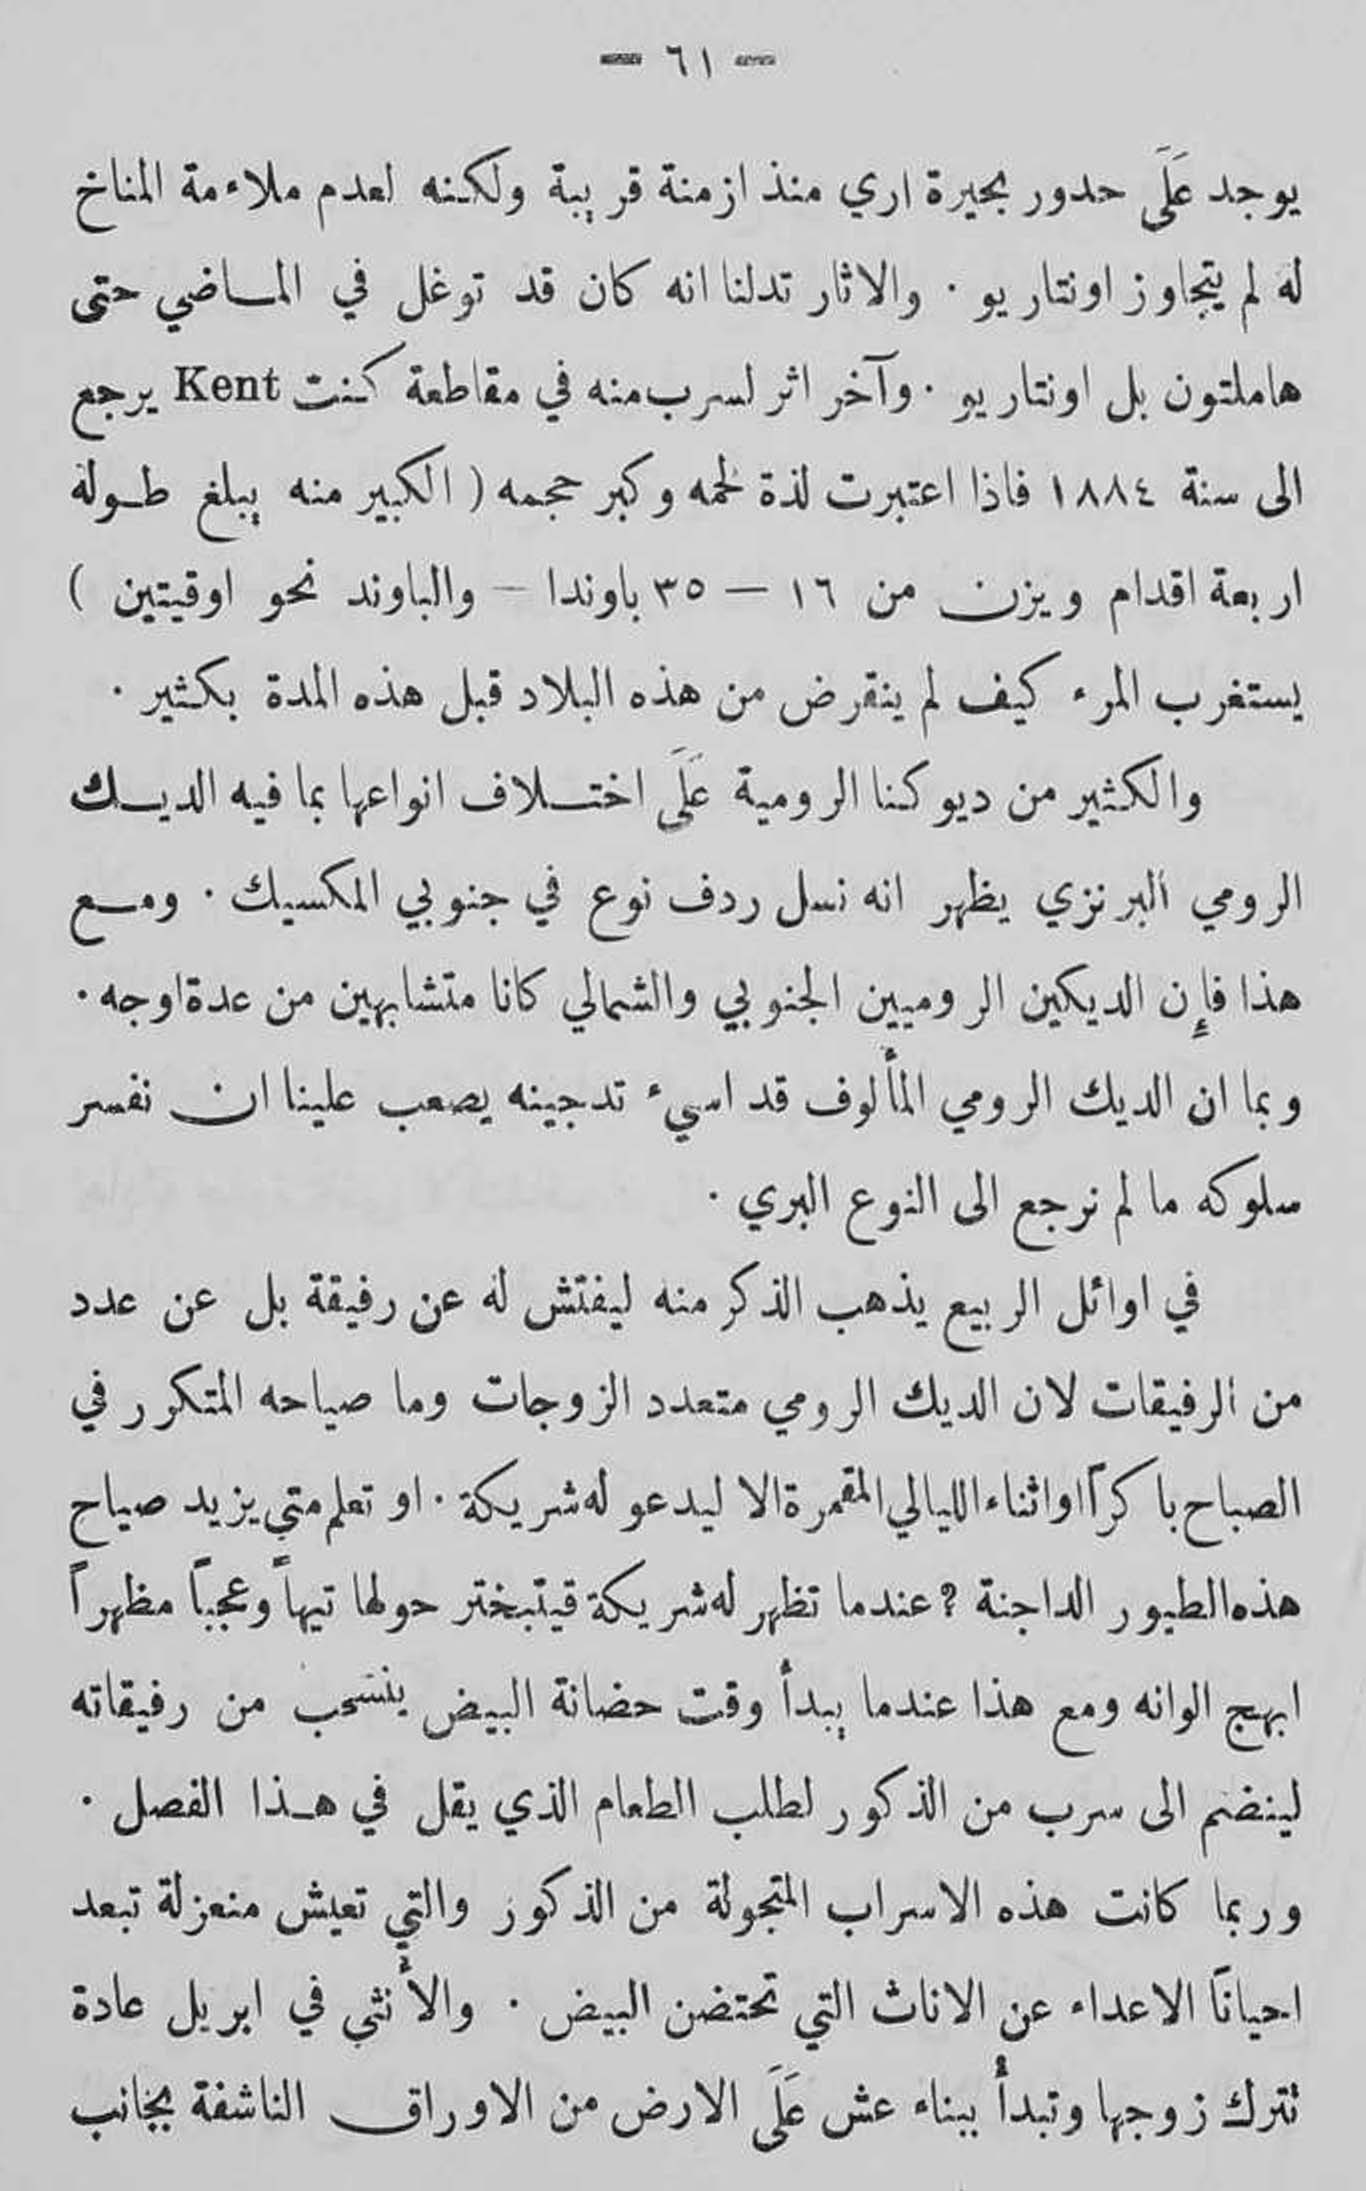 — ٦١ —
يوجد عَلَى حدور بحيرة اري منذ ازمنة قريبة ولكنه لعدم ملاءمة المناخ
له لم يتجاوز اونتاريو . والاثار تدلنا انه كان قد توغل في المـاضي حتى
هاملتون بل اونتاريو . وآخر اثر لسرب منه في مقاطعة كنت Kent يرجع
الى سنة ١٨٨٤ فاذا اعتبرت لذة لحمه وكبر حجمه ( الكبير منه يبلغ طـوله
اربعة اقدام ويزن من ١٦ — ٣٥ باوندا — والباوند نحو اوقيتين )
يستغرب المرء كيف لم ينقرض من هذه البلاد قبل هذه المدة بكثير .
والكثير من ديوكنا الرومية عَلَى اختـلاف انواعها بما فيه الديـك
الرومي البرنزي يظهر انه نسل ردف نوع في جنوبي المكسيك . ومـع
هذا فإن الديكين الروميين الجنوبي والشمالي كانا متشابهين من عدة اوجه .
وبما ان الديك الرومي المألوف قد اسيء تدجينه يصعب علينا ان نفسر
سلوكه ما لم نرجع الى النوع البري .
في اوائل الربيع يذهب الذكر منه ليفتش له عن رفيقة بل عن عدد
من الرفيقات لان الديك الرومي متعدد الزوجات وما صياحه المتكرر في
الصباح باكراً او اثناء الليالي المقمرة الا ليدعو له شريكة . او تعلم متى يزيد صياح
هذه الطيور الداجنة ? عندما تظهر له شريكة قيتبختر حولها تيهاً وعجباً مظهراً
ابهج الوانه ومع هذا عندما يبدأ وقت حضانة البيض ينسحب من رفيقاته
لينضم الى سرب من الذكور لطلب الطعام الذي يقل في هـذا الفصل .
وربما كانت هذه الاسراب المتجولة من الذكور والتي تعيش منعزلة تبعد
احيانًا الاعداء عن الاناث التي تحتضن البيض . والأنثى في ابريل عادة
تترك زوجها وتبدأ ببناء عش عَلَى الارض من الاوراق الناشفة بجانب